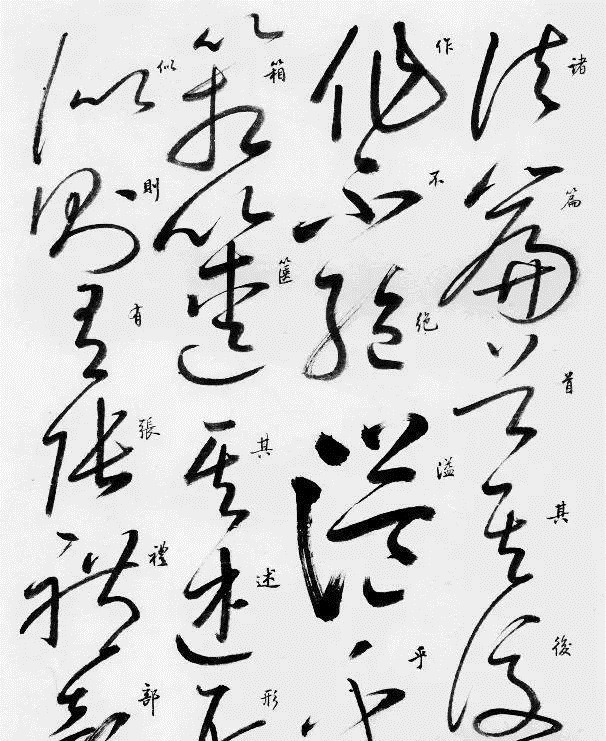 諸篇首其後
作不絕溢乎
箱篋其述形
似則有張禮部